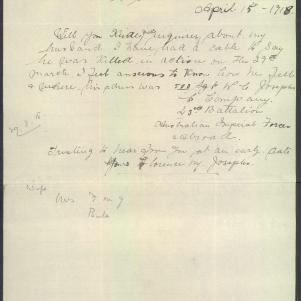 April 15 - 1918
Will you Kindly enquire about my
husband I have had a cable to say
he was killed in action on the 29th
March. I feel anxious to know how he fell
& where, his address was Sgt R. C. Josephs
Company
Battalion
Australian Imperial Forces
abroad.
Trusting to hear from you at an early date
Yours Florence M. Josephs
29.3.18
Wife
Mrs